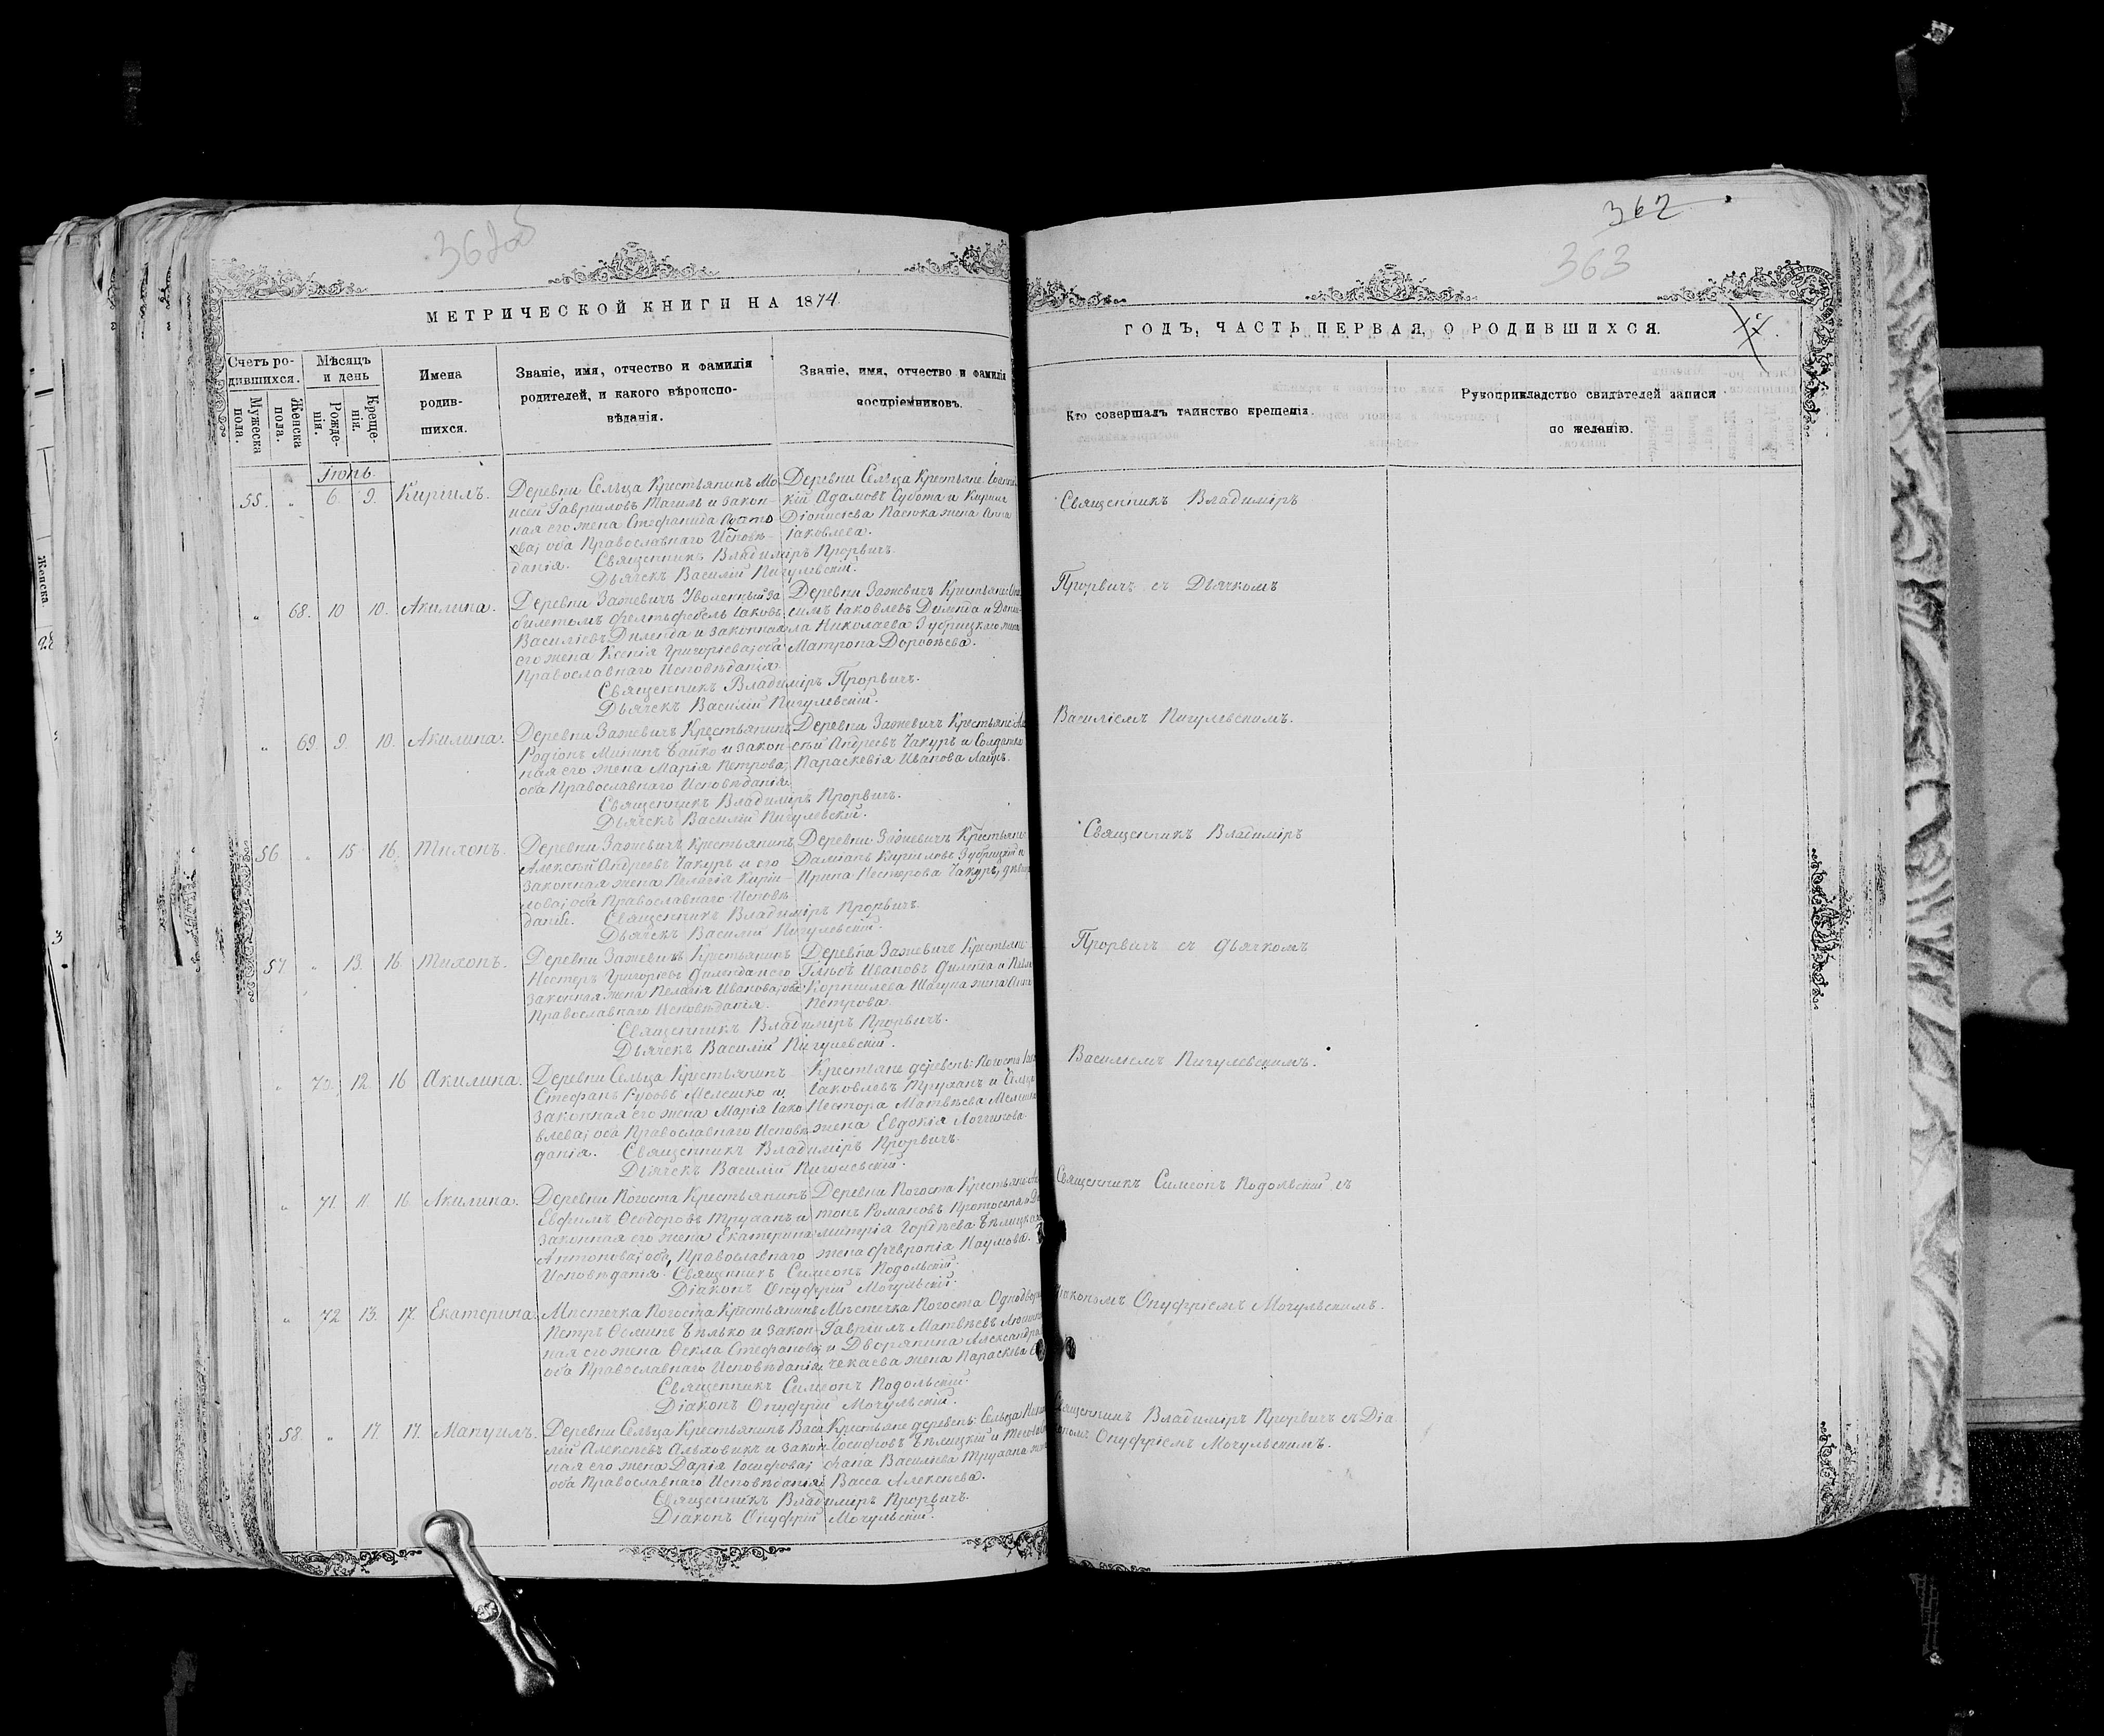 362
363
МЕТРИЧЕСКОЙ КНИГИ НА 1874
ГОДЪ, ЧАСТЬ ПЕРВАЯ, О РОДИВШИХСЯ.
Счетъ ро-
дившихся.
Мужеска пола.
Женска пола.
Мѣсяцъ
и день
Рожде-
нія.
Креще-
нія.
Имена
родив-
шихся.
Званіе, имя, отчество и фамилія
родителей, и какого вѣроиспо-
вѣданія.
Званіе, имя, отчество и фамилія
воспріемниковъ.
Кто совершалъ таинство крещенія.
Рукоприкладство свидѣтелей записи
по желанію.
Іюнь
55. „ 6 9. Кириллъ.
Деревни Сельца Крестьянинъ Мо
исей Гавриловъ и закон-
ная его жена Стефанида
оба Православнаго Исповѣ-
данія. Священникъ Владиміръ Прорвичъ.
Дьячекъ Василій Пигулевскій.
Деревни Сельца Крестьяне
кій Адамовъ Субота и Кирила
Діонисіева Пасюка жена Анна
Іаковлева.
„ 68. 10 10. Акилина.
Деревни Зажевичъ Уволенный за
билетомъ фельтфебель Іаковъ
Василіевъ Диленда и законная
его жена Ксенія Григоріева; оба
Православнаго Исповѣданія
Священникъ Владиміръ Прорвичъ.
Дьячекъ Василій Пигулевскій.
Деревни Зажевичъ Крестьяне
симъ Іаковлевъ и Дани-
ла Николаева Зубрицкаго жена
Матрона Дороѳѣева.
„ 69. 9. 10. Акилина.
Деревни Зажевичъ Крестьянинъ
Родіонъ Мининъ Байко и закон-
ная его жена Марія Петрова;
оба Православнаго Исповѣданія.
Священникъ Владиміръ Прорвичъ.
Дьячекъ Василій Пигулевскій.
Деревни Зажевичъ Крестьяне
ксѣй Андреевъ Чакуръ и Солдатка
Параскевія Иванова
56 „ 15 16. Тихонъ.
Деревни Зажевичъ Крестьянинъ
Алексѣй Андреевъ Чакуръ и его
законная жена Пелагія Кирил-
лова; оба Православнаго Исповѣ-
данія. Священникъ Владиміръ Прорвичъ.
Дьячекъ Василій Пигулевскій.
Деревни Зажевичъ Крестьяне
Даміанъ Кириловъ Зубрицкій и
Ирина Нестерова Чакуръ,
57 „ 13. 16 Тихонъ.
Деревни Зажевичъ Крестьянинъ
Нестеръ Григоріевъ Диленда и его
законная жена Пелагія Иванова; оба
Православнаго Исповѣданія.
Священникъ Владиміръ Прорвичъ.
Дьячекъ Василій Пигулевскій.
Деревни Зажевичъ Крестьяне
Глѣбъ Ивановъ и
Корнилева Шагуна жена Анна
Петрова.
„ 70. 12 16 Акилина.
Деревни Сельца Крестьянинъ
Стефанъ Мелешко и
законная его жена Марія Іако
влева; оба Православнаго Исповѣ-
данія. Священникъ Владиміръ Прорвичъ.
Дьячекъ Василій Пигулевскій.
Крестьяне деревень: Погоста
Іаковлевъ Труханъ и Сельца
Нестора Матвѣева
жена Евдокія Логгинова.
„ 71. 11 16 Акилина.
Деревни Погоста Крестьянинъ
Евфимъ Ѳеодоровъ Труханъ и
законная его жена Екатерина
Антонова; оба Православнаго
Исповѣданія. Священникъ Симеонъ Подольскій.
Діаконъ Онуфрій Мочульскій.
Деревни Погоста Крестьяне
тонъ Романовъ
митрія Гордѣева Бѣлицкаго
жена Февронія Наумова.
„ 72 13. 17. Екатерина.
Мѣстечка Погоста Крестьянинъ
Петръ Ѳоминъ Бѣлько и закон-
ная его жена Ѳекла Стефанова;
оба Православнаго Исповѣданія.
Священникъ Симеонъ Подольскій.
Діаконъ Онуфрій Мочульскій.
Мѣстечка Погоста
Гавріилъ Матвѣевъ
и Дворянина Александра
жена Параскева
58. „ 17. 17. Мануилъ.
Деревни Сельца Крестьянинъ Васи
лій Алексѣевъ Альховикъ и закон
ная его жена Дарія Іосифова;
оба Православнаго Исповѣданія.
Священникъ Владиміръ Прорвичъ.
Діаконъ Онуфрій Мочульскій.
Крестьяне деревень: Сельца
Іосифовъ Бѣлицкій и
Василіева Трухана
Васса Алексѣева.
Священникъ Владиміръ
Прорвичъ съ Дьячкомъ
Василіемъ Пигулевскимъ.
Священникъ Владиміръ
Прорвичъ съ дьячкомъ
Василіемъ Пигулевскимъ.
Священникъ Симеонъ Подольскій съ
Діакономъ Онуфріемъ Мочульскимъ.
Священникъ Владиміръ Прорвичъ съ Діа
кономъ Онуфріемъ Мочульскимъ.